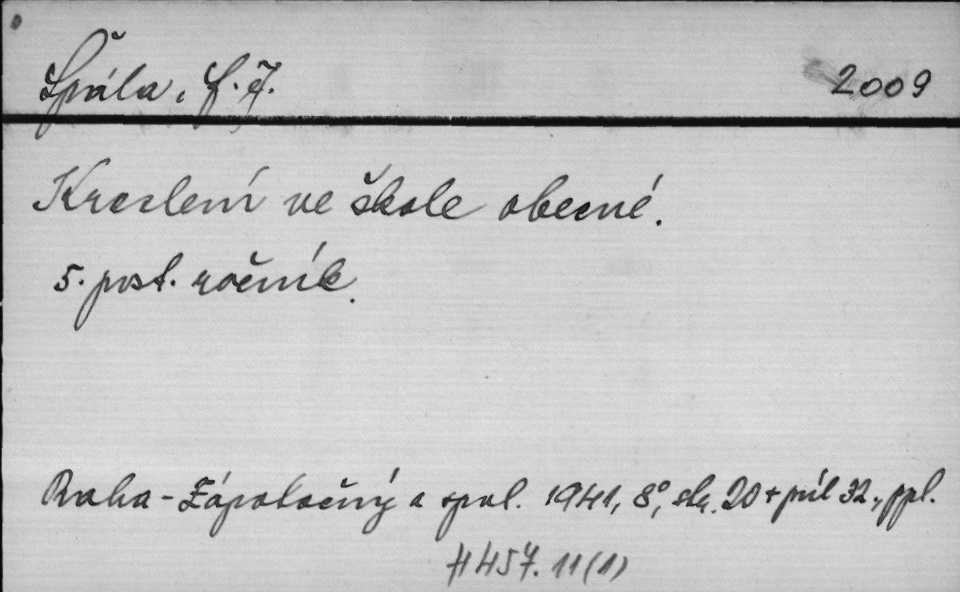 Špála, F. J. 2009
Kreslení ve škole obecné.
5. post. ročník.
Praha - Zápotočný a spol. 1941, 8°, str. 20 + příl 32., ppl.
H 457. 11 (1)